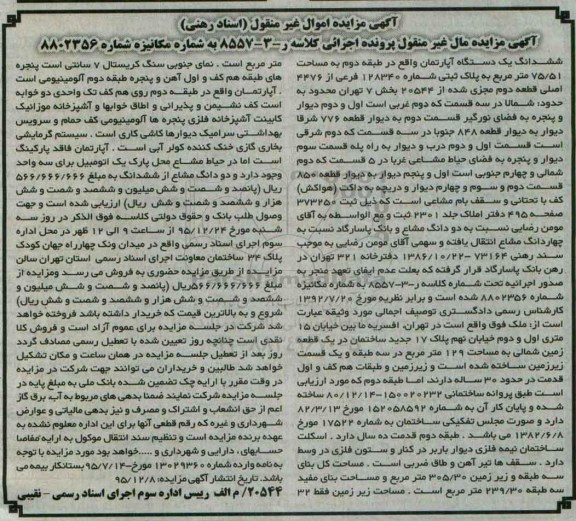 آگهی مزایده اموال غیر منقول (اسناد رهنی)
آگهی مزایده مال غیر منقول پرونده اجرائی کلاسه ر-۳-۸۵۵۷ به شماره مکانیزه شماره ۸۸۰۲۳۵۶
ششدانگ یک دستگاه آپارتمان واقع در طبقه دوم به مساحت
۷۵/۵۱ متر مربع به پلاک ثبتی شماره ۱۲۸۳۴۰ فرعی از ۴۴۷۶
اصلی قطعه دوم مجزی شده از ۲۰۵۴۴ بخش ۷ تهران محدود به
حدود: شمالا در سه قسمت که دوم غربی است اول و دوم دیوار
و پنجره به فضای نورگیر قسمت دوم به دیوار قطعه ۷۷۶ شرقا
دیوار به دیوار قطعه ۸۴۸ جنوبا در سه قسمت که دوم شرقی
است قسمت اول و دوم درب و دیوار به راه پله قسمت سوم
دیوار و پنجره به فضای حیاط مشاعی غربا در ۵ قسمت که دوم
شمالی و چهارم جنوبی است اول و پنجم دیوار به دیوار قطعه ۸۵۰
قسمت دوم و سوم و چهارم دیوار و دریچه به داکت (هواکش)
کف با تحتانی و سقف بام مشاعی است که ذیل ثبت ۳۷۳۲۵۰
صفحه ۴۹۵ دفتر املاک جلد ۲۳۰۱ ثبت و مع الواسطه به آقای
مومن رضایی نسبت به دو دانگ مشاع و بانک پاسارگاد نسبت به
چهاردانگ مشاع انتقال یافته و سهمی آقای مومن رضایی به موجب
سند رهنی ۷۳۱۶۴ -۱۳۸۶/۱۰/۲۲ دفترخانه ۳۲۱ تهران در
رهن بانک پاسارگاد قرار گرفته که بعلت عدم ایفای تعهد منجر به
صدور اجرائیه تحت شماره کلاسه ر-۳-۸۵۵۷ به شماره مکانیزه
شماره ۸۸۰۲۳۵۶ شده است و برابر نظریه مورخ ۱۳۹۲/۷/۲۰
کارشناس رسمی دادگستری توصیف اجمالی مورد وثیقه عبارت
است از: ملک فوق واقع است در تهران، افسریه ما بین خیابان ۱۵
متری اول و دوم خیابان نهم پلاک ۱۷ جدید ساختمان در یک قطعه
زمین شمالی به مساحت ۱۲۹ متر مربع در سه طبقه و یک قسمت
زیرزمین ساخته شده است و زیرزمین و طبقات هم کف و اول
قدمت در حدود ۳۰ ساله دارند، اما طبقه دوم که مورد ارزیابی
است طبق پروانه ساختمانی ۱۵۰۰۲۰۲۳۲-۸۰/۱۲/۱۴ ساخته
شده و پایان کار آن به شماره ۱۵۲۰۵۸۵۹۲ مورخ ۸۲/۳/۱۳
دارد و صورت مجلس تفکیکی ساختمان به شماره ۱۷۵۲۲ مورخ
۱۳۸۲/۶/۸ می باشد . طبقه دوم قدمت ده سال دارد . اسکلت
ساختمان نیمه فلزی دیوار باربر در کنار و ستون فلزی در وسط
دارد . سقف ها تیر آهن و طاق ضربی است . مساحت کل بنای
سه طبقه و زیر زمین ۳۰۵/۳۰ متر مربع و مساحت بنای مفید
سه طبقه ۲۳۹/۳۰ متر مربع است . مساحت زیر زمین فقط ۳۲
متر مربع است . نمای جنوبی سنگ کریستال ۷ سانتی است پنجره
های طبقه هم کف و اول آهن و پنجره طبقه دوم آلومینیومی است
. آپارتمان واقع در طبقه دوم روی هم کف تک واحدی دو خوابه
است کف نشیمن و پذیرائی و اطاق خوابها و آشپزخانه موزائیک
کابینت آشپزخانه فلزی پنجره ها آلومینیومی کف حمام و سرویس
بهداشتی سرامیک دیوارها کاشی کاری است . سیستم گرمایشی
بخاری گازی خنک کننده کولر آبی است . آپارتمان فاقد پارکینگ
است اما در حیاط مشاع محل پارک یک اتومبیل برای سه واحد
وجود دارد و دو دانگ مشاع از ششدانگ به مبلغ ۵۶۶/۶۶۶/۶۶۶
ریال (پانصد و شصت و شش میلیون و ششصد و شصت و شش
هزار و ششصد و شصت و شش ریال) ارزیابی شده است و جهت
وصول طلب بانک و حقوق دولتی کلاسه فوق الذکر در روز سه
شنبه مورخ ۹۵/۱۲/۲۴ از ساعت ۹ الی ۱۲ ظهر در محل اداره
سوم اجرای اسناد رسمی واقع در میدان ونک چهارراه جهان کودک
پلاک ۳۴ ساختمان معاونت اجرای اسناد رسمی استان تهران سالن
مزایده از طریق مزایده حضوری به فروش می رسد ومزایده از
مبلغ ۵۶۶/۶۶۶/۶۶۶ریال (پانصد و شصت و شش میلیون و
ششصد و شصت و شش هزار و ششصد و شصت و شش ریال)
شروع و به بالاترین قیمت که خریدار داشته باشد فروخته خواهد
شد شرکت در جلسه مزایده برای عموم آزاد است و فروش کلا
نقدی است چنانچه روز تعیین شده با تعطیل رسمی مصادف گردد
روز بعد از تعطیل جلسه مزایده در همان ساعت و مکان تشکیل
خواهد شد طالبین و خریداران می توانند جهت شرکت در مزایده
در وقت مقرر با ارایه چک تضمین شده بانک ملی به مبلغ پایه در
جلسه مزایده شرکت نمایند ضمنا بدهی های مربوط به آب، برق گاز
اعم از حق انشعاب و اشتراک و مصرف و نیز بدهی مالیاتی و عوارض
شهرداری و غیره که رقم قطعی آنها برای این اداره معلوم نشده به
عهده برنده مزایده است و تنظیم سند انتقال موکول به ارایه مفاصا
حسابهای، دارایی و شهرداری و ..... خواهد بود مورد مزایده با توجه
به نامه وارده شماره ۱۳۰۲۹۳۶۰ مورخ-۹۵/۷/۱۴ بستانکار بیمه می
باشد. تاریخ انتشار آگهی مزایده: ۹۵/۱۲/۸
۲۰۵۴۴/ م الف رییس اداره سوم اجرای اسناد رسمی - نقیبی